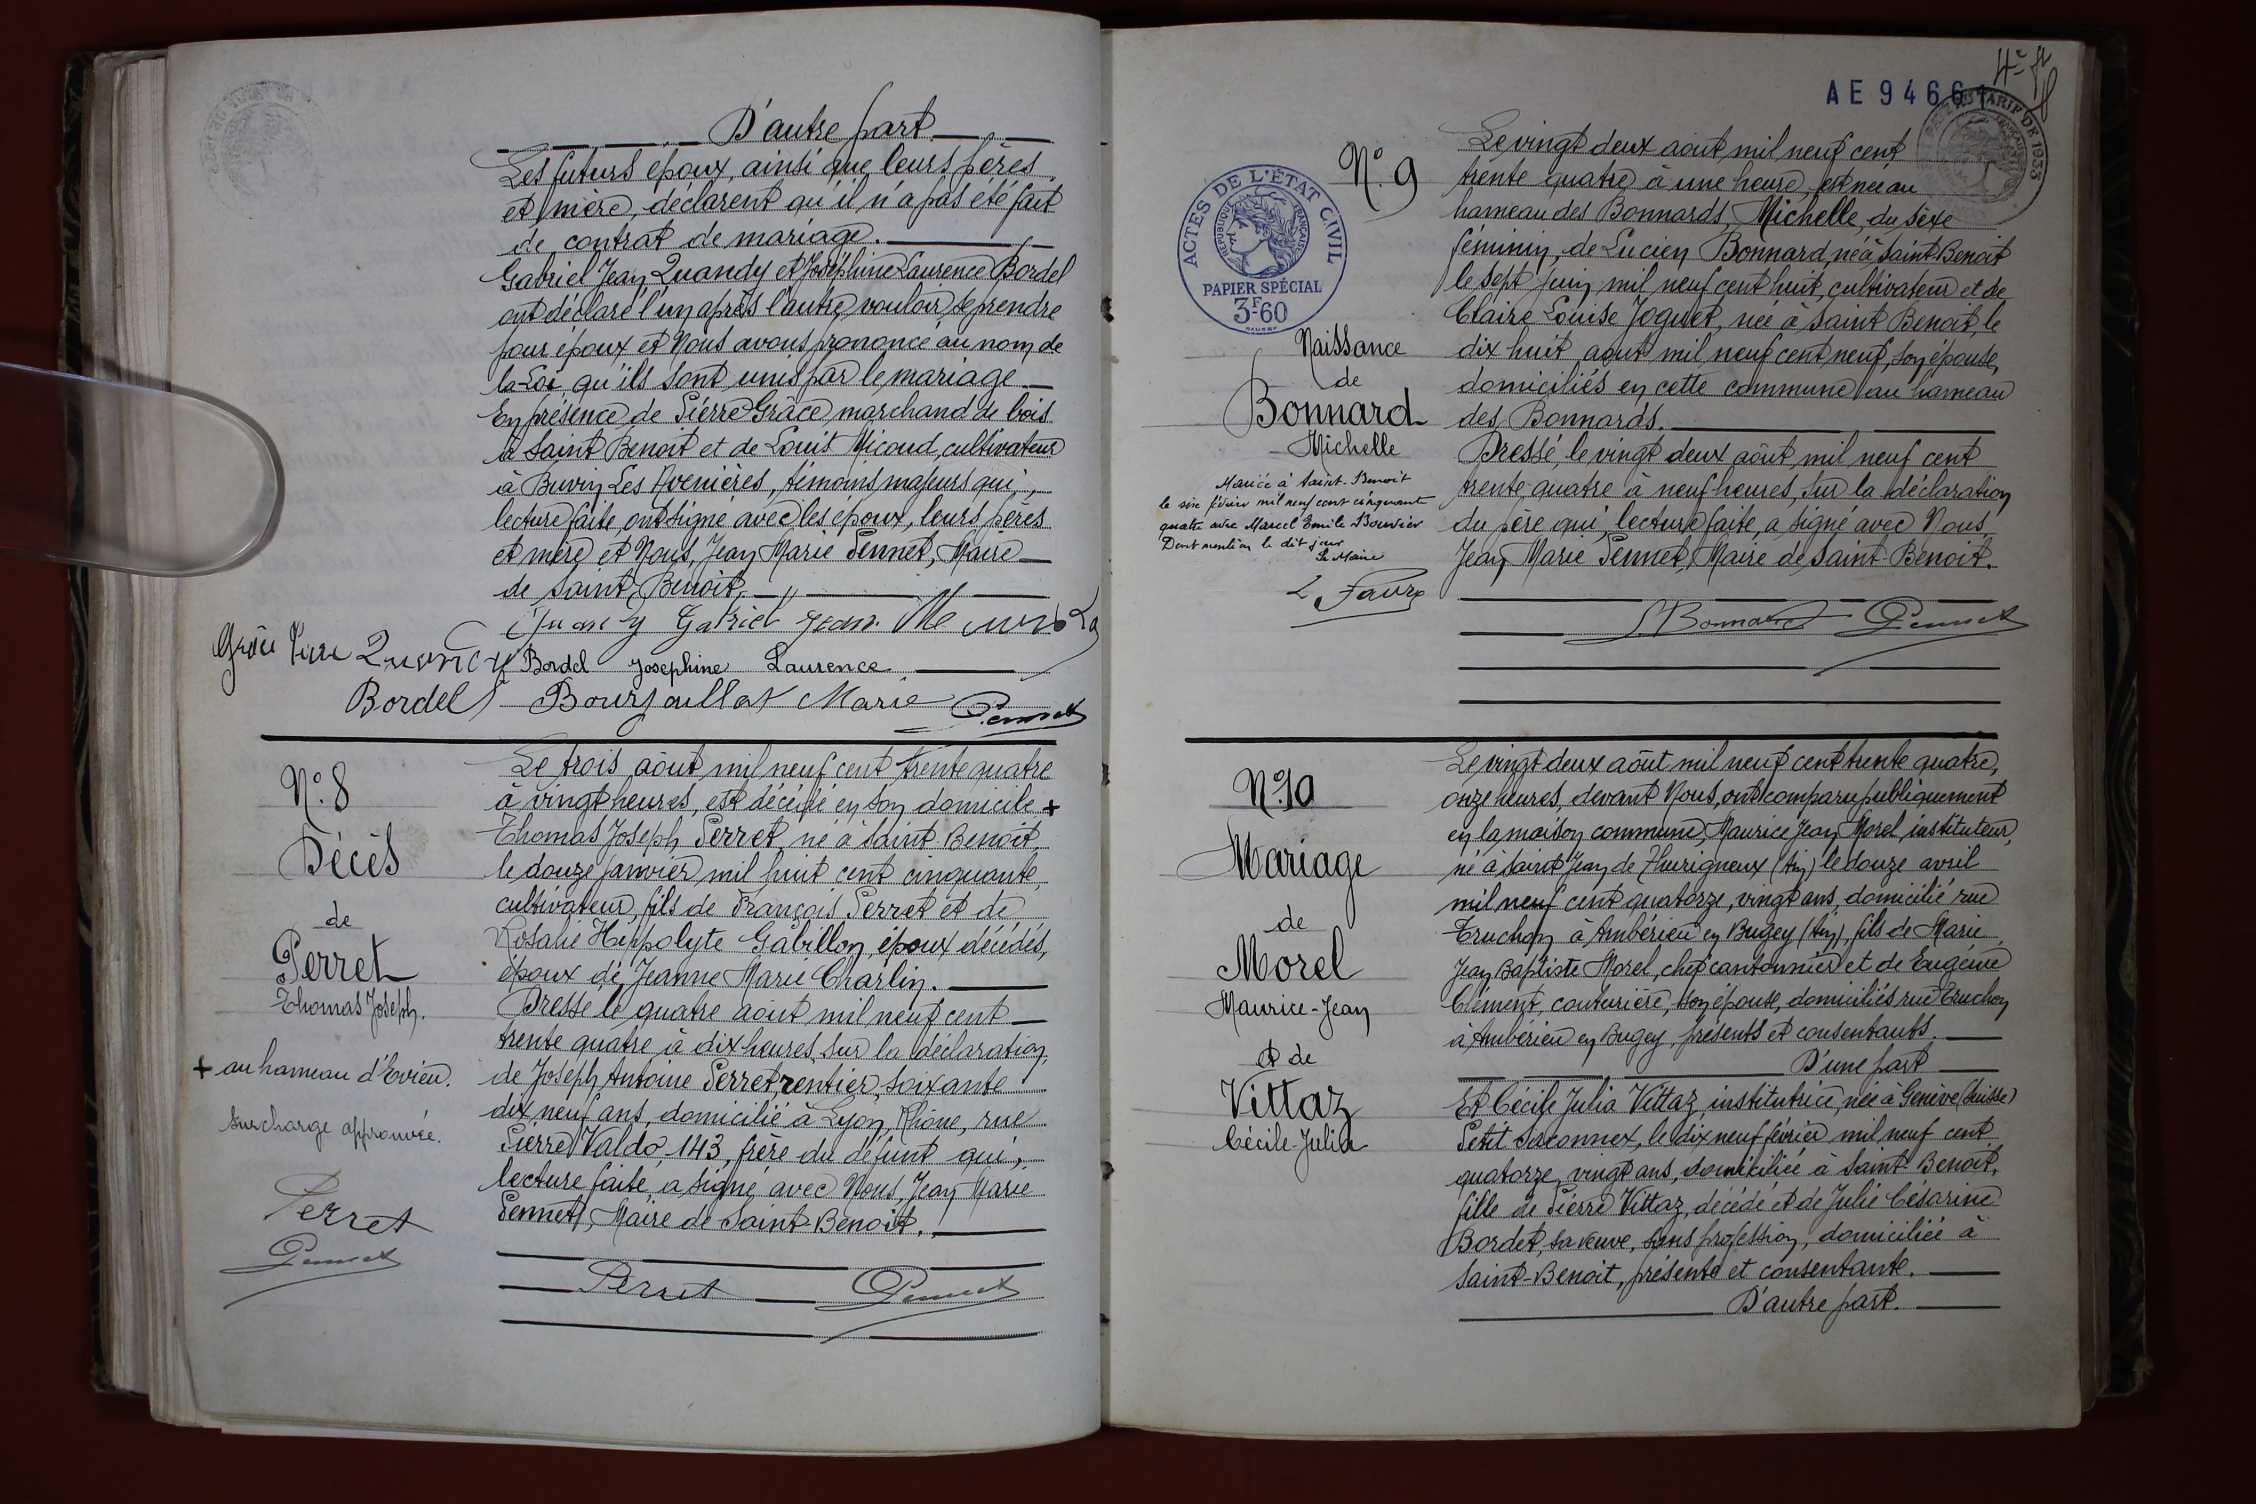 D'autre part
Les futurs époux, ainsi que leurs pères
et mère, déclarent qu'il n'a pas été fait
de contrat de mariage.
Gabriel Jean Quandy et Joséphine Laurence Bordel
ont déclaré l'un après l'autre vouloir se prendre
pour époux et Nous avons prononcé au nom de
la Loi qu'ils sont unis par le mariage
En présence de Pierre Grâce, marchand de bois
à Saint Benoit et de Louis Micoud, cultivateur
à Buvin Les Avenières, témoins majeurs qui,
lecture faite, ont signé avec les époux, leurs pères
et mère et Nous, Jean Marie Pennet, Maire
de Saint-Benoit.
Quandy Gabriel Jean
Quandy Bordel Josephine Laurence
Bordel Bourjaillat Marie Pennet
N° 8
Décès
de
Perret
Thomas Joseph.
+ au hameau d'Evieu.
surcharge approuvée.
Perret
Pennet
Le trois août mil neuf cent trente quatre
à vingt heures, est décédé en son domicile +
Thomas Joseph Perret, né à Saint-Benoit,
le douze janvier mil huit cent cinquante,
cultivateur, fils de François Perret et de
Rosalie Hippolyte Gabillon, époux décédés,
époux de Jeanne Marie Charlin.
Dressé le quatre août mil neuf cent
trente quatre à dix heures, sur la déclaration,
de Joseph Antoine Perret, rentier, soixante
dix neuf ans, domicilié à Lyon, Rhône, rue
Pierre Valdo, 143, frère du défunt qui,
lecture faite, a signé avec Nous, Jean Marie
Pennet, Maire de Saint-Benoit.
Perret Pennet
4e ft
AE 94661
TARIF DE 1933
N° 9
ACTES DE L'ÉTAT CIVIL
RÉPUBLIQUE FRANÇAISE
PAPIER SPÉCIAL
3F60
Naissance
de
Bonnard
Michelle
Mariée à Saint-Benoit
le six février mil neuf cent cinquant
quatre avec Marcel Emile Bouvier
Dont mention le dit jour
Le Maire
L Favre
Le vingt deux août mil neuf cent
trente quatre à une heure, est née au
hameau des Bonnards, Michelle, du sexe
féminin, de Lucien Bonnard, né à Saint-Benoit
le sept juin mil neuf cent huit, cultivateur et de
Claire Louise Joguet, née à Saint Benoit, le
dix huit août mil neuf cent neuf, son épouse,
domiciliés en cette commune au hameau
des Bonnards.
Dressé, le vingt deux août mil neuf cent
trente quatre à neuf heures, sur la déclaration
du père qui, lecture faite, a signé avec Nous
Jean Marie Pennet, Maire de Saint-Benoit.
L Bonnard Pennet
N° 10
Mariage
de
Morel
Maurice-Jean
et de
Vittaz
Cécile-Julia
Le vingt deux août mil neuf cent trente quatre,
onze heures, devant Nous, ont comparu publiquement
en la maison commune, Maurice Jean Morel, instituteur,
né à Saint Jean de Thurigneux (Ain) le douze avril
mil neuf cent quatorze, vingt ans, domicilié rue
Truchon à Ambérieu en Bugey (Ain), fils de Marie
Jean Baptiste Morel, chef cantonnier et de Eugénie
Clément, couturière, son épouse, domiciliés rue Truchon
à Ambérieu en Bugey, présents et consentants.
D'une part
Et Cécile Julia Vittaz, institutrice, née à Genève (Suisse)
Petit Saconnex, le dix neuf février mil neuf cent
quatorze, vingt ans, domiciliée à Saint-Benoit,
fille de Pierre Vittaz, décédé et de Julie Césarine
Bordet, sa veuve, sans profession, domiciliée à
Saint-Benoit, présente et consentante.
D'autre part.